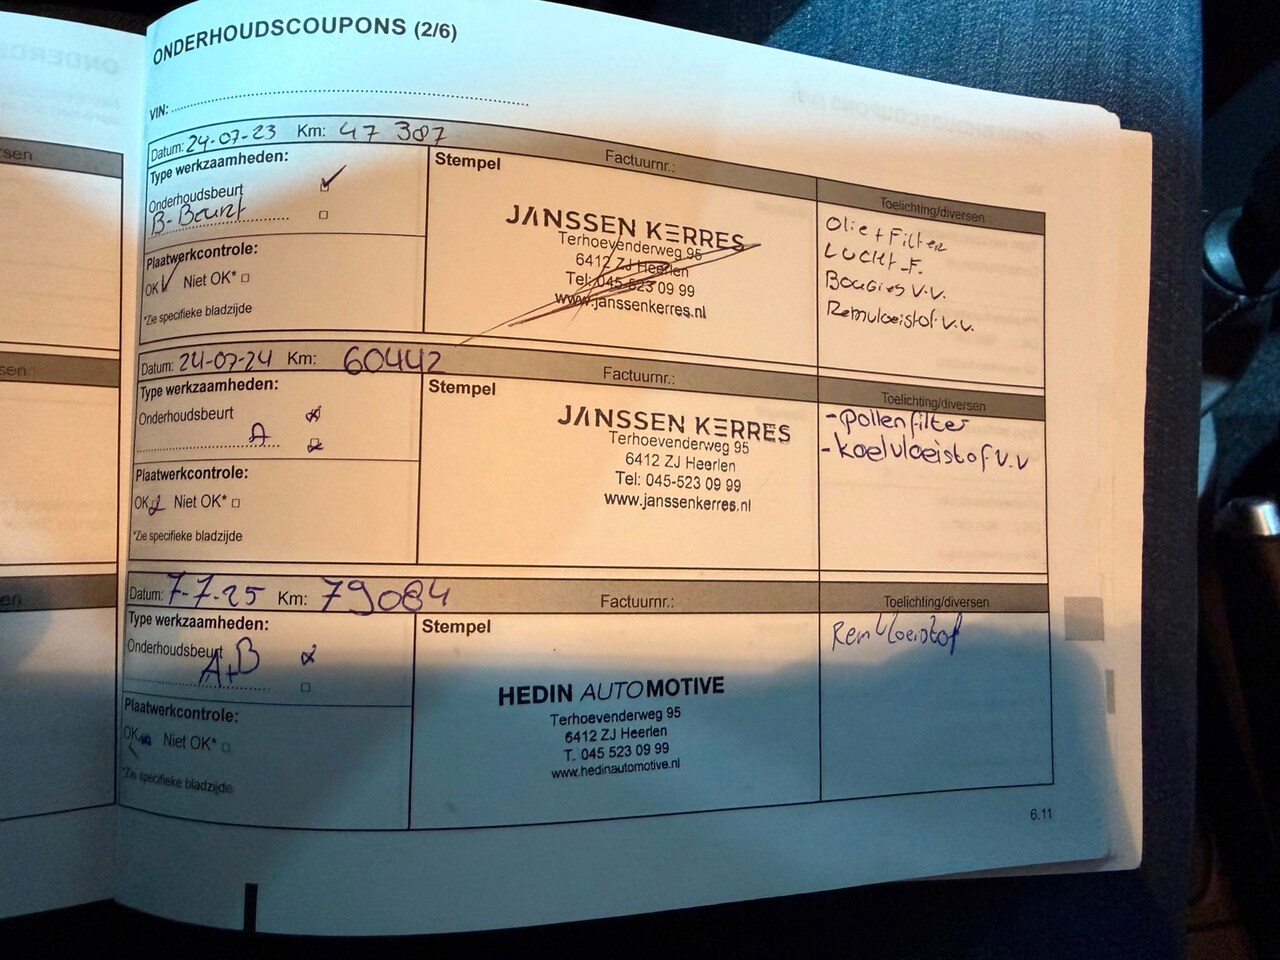 ONDERHOUDSCOUPONS (2/6)
VIN:
Datum: 24-07-23 Km: 47 387
Type werkzaamheden:
Onderhoudsbeurt
B-Beurt
Plaatwerkcontrole:
OK Niet OK*
*Zie specifieke bladzijde
Stempel
Factuurnr.:
JANSSEN KERRES
Terhoevenderweg 95
6412 ZJ Heerlen
Tel: 045-523 09 99
www.janssenkerres.nl
Toelichting/diversen
Olie + Filter
Lucht-F.
Bougies v.v.
Remvloeistof v.v.
Datum: 24-07-24 Km: 60442
Type werkzaamheden:
Onderhoudsbeurt
A
Plaatwerkcontrole:
OK Niet OK*
*Zie specifieke bladzijde
Stempel
Factuurnr.:
JANSSEN KERRES
Terhoevenderweg 95
6412 ZJ Heerlen
Tel: 045-523 09 99
www.janssenkerres.nl
Toelichting/diversen
-pollenfilter
-koelvloeistof v.v
Datum: 7-7-25 Km: 79084
Type werkzaamheden:
Onderhoudsbeurt
A+B
Plaatwerkcontrole:
OK Niet OK*
*Zie specifieke bladzijde
Stempel
Factuurnr.:
HEDIN AUTOMOTIVE
Terhoevenderweg 95
6412 ZJ Heerlen
T. 045 523 09 99
www.hedinautomotive.nl
Toelichting/diversen
Remvloeistof
6.11